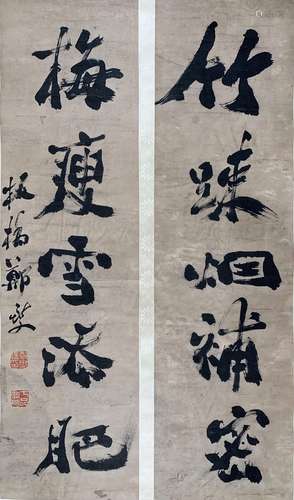 竹疎烟補密
梅瘦雪添肥
板橋鄭燮